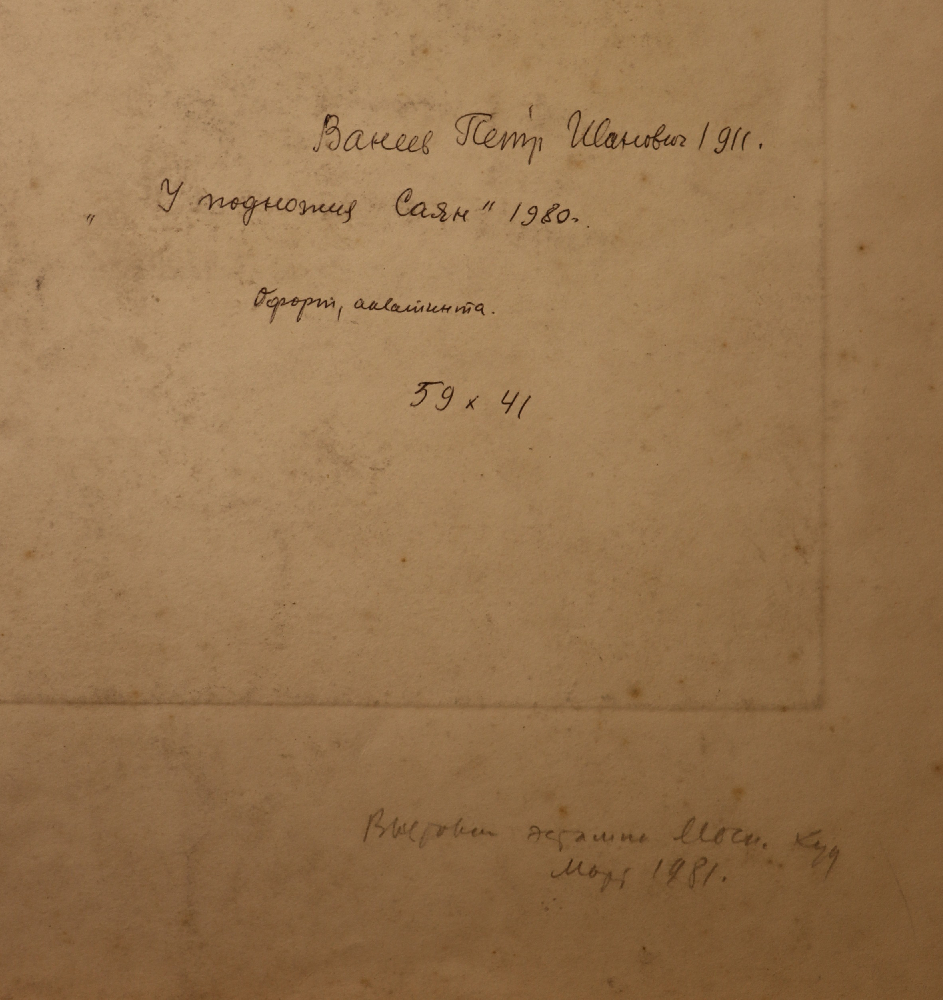 Ванеев Петр Иванович 1911.
„У подножия Саян" 1980.
Офорт, акватинта.
59 x 41
Выставка эстампа Моск. худ
Март 1981.